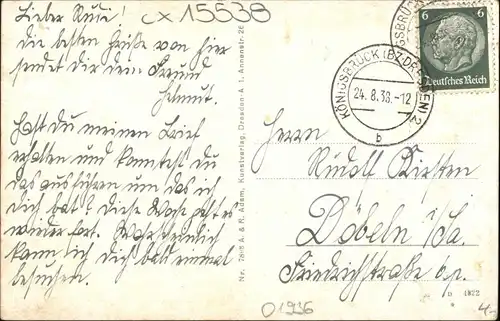 Lieber Rudi!
cx 15538
die besten Grüße von hier
sendet dir dein Freund
Helmut.
Hast du meinen Brief
erhalten und kanntest du
das ausführen um das ich
dich bat? Diese Woche geht es
wieder fort. Wahrscheinlich
kann ich dich bald einmal
besuchen.
Nr. 7808 A. & R. Adam, Kunstverlag, Dresden-A. 1, Annenstr. 26
KÖNIGSBRÜCK (BZ. DRESDEN) 2
24.8.36.-12
b
6 6
Deutsches Reich
Herrn
Rudolf Kirsten
Döbeln i/Sa.
Friedrichstraße
D 4922
O 1936